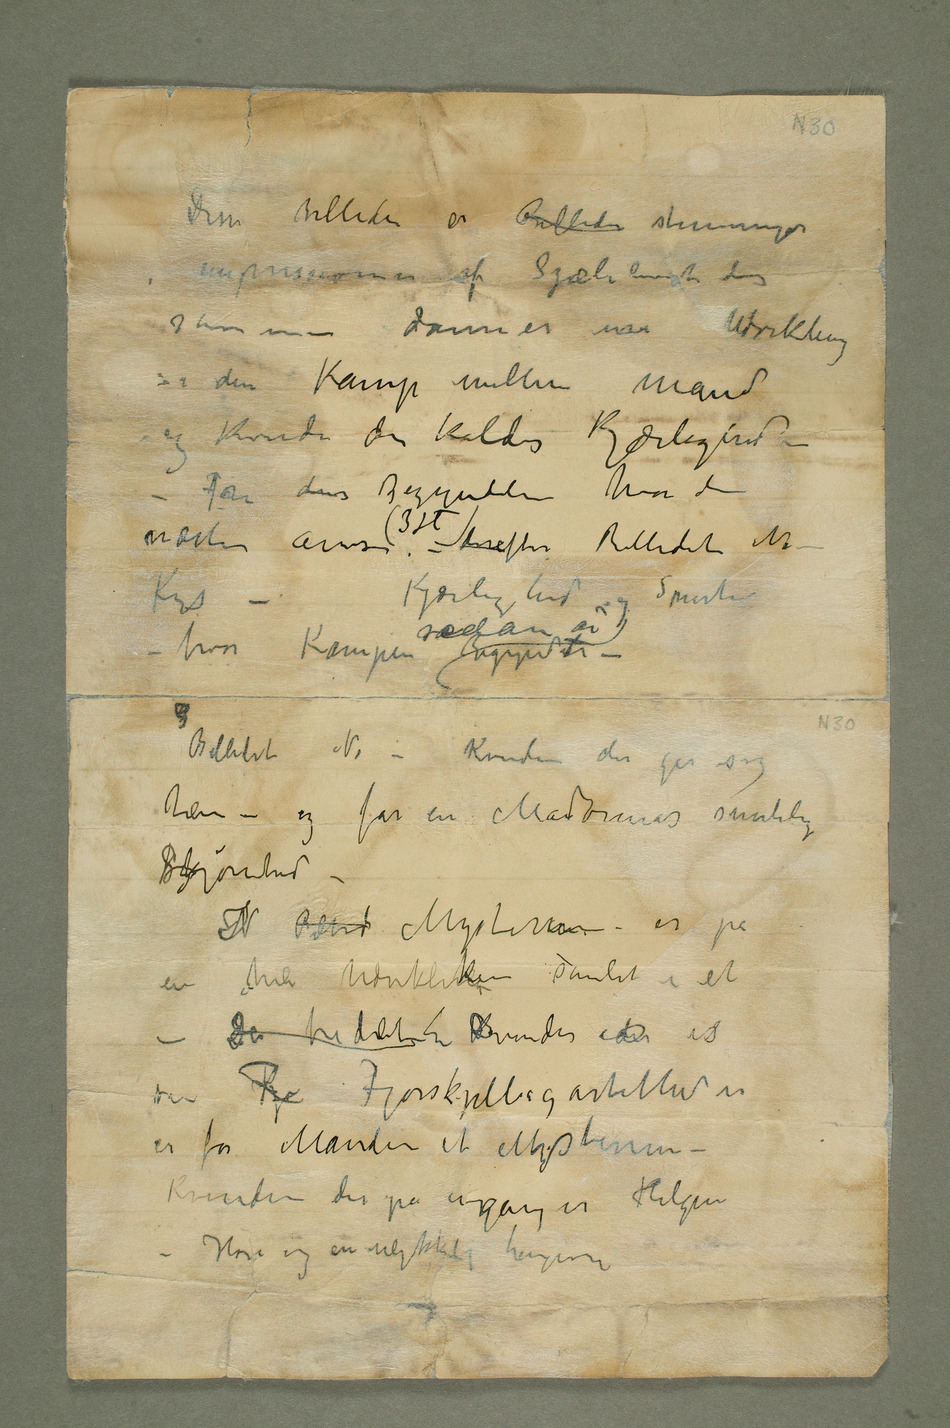 N30
Disse billeder er Billeder stemninger
, impressioner af Sjælelivet des
sammen danner en Udvikling
i den Kamp mellem mand
og Kvinde der kaldes Kjærlighed –
– Fra dens Begyndelse hvor den
næsten avvises. (3 st) – derefter Billedet No –
Kys – Kjærlighed og Smerte
– hvor Kampen begyndt –
sådan er
N30
Billedet No – Kvinden der gir sig
hen – og får en Madonnas smertelig
Skjønhed –
Mysterium – er på
en hel Udviklingen samlet i et
– Kvinden i sin
Forskjelligartethed er
er for Manden et Mysterium –
Kvinden der på engang er Helgen
– Hore og en ulykkelig hengiven